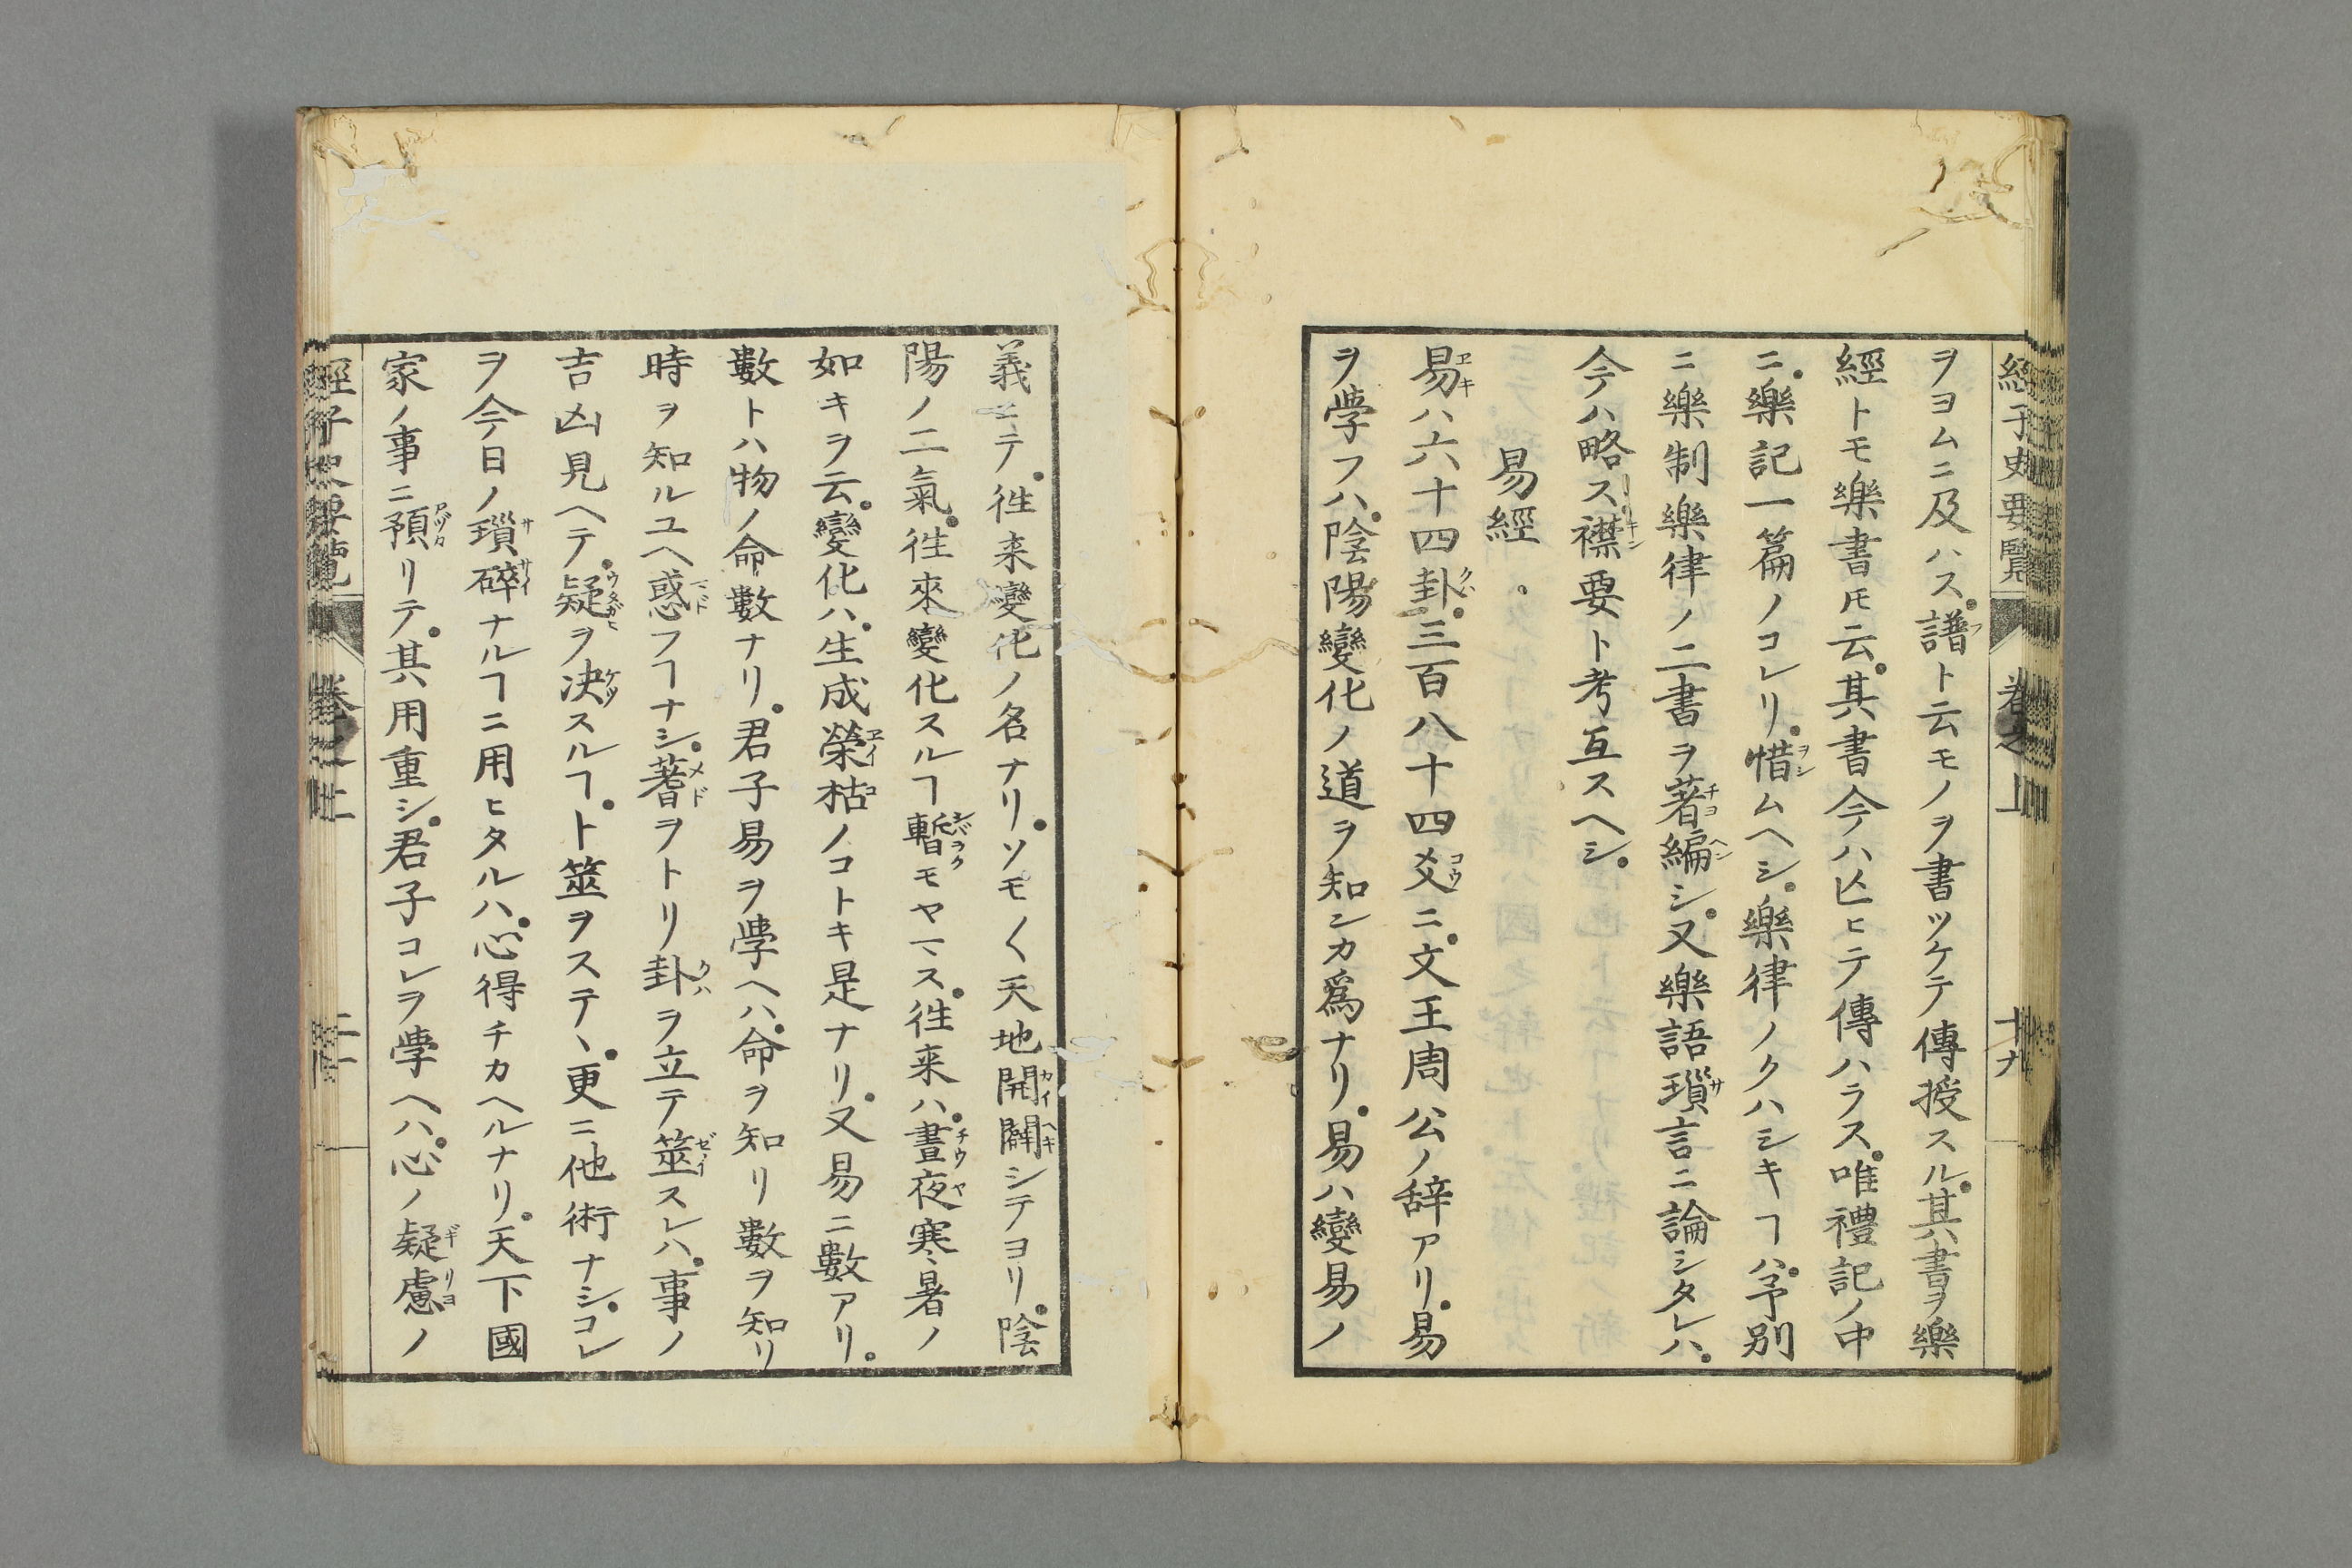 經子史要覽 卷之上 十九
ヲヨムニ及ハス。譜ト云モノヲ書ツケテ傳授スル。其書ヲ樂
經トモ樂書トモ云。其書今ハ亾ヒテ傳ハラス。唯禮記ノ中
ニ。樂記一篇ノコレリ。惜ムヘシ。樂律ノクハシキヿハ。予別
ニ樂制樂律ノ二書ヲ著編シ。又樂語瑣言ニ論シタレハ。
今ハ略ス。襟要ト考互スヘシ。
易經。
易ハ六十四卦。三百八十四爻ニ。文王周公ノ辞アリ。易
ヲ學フハ。陰陽變化ノ道ヲ知ンカ爲ナリ。易ハ變易ノ
義ニテ。徃来變化ノ名ナリ。ソモ〱天地開闢シテヨリ。陰
陽ノ二氣。徃來變化スルヿ暫モヤマス。徃来ハ。晝夜寒暑ノ
如キヲ云。變化ハ。生成榮枯ノコトキ是ナリ。又易ニ數アリ。
數トハ物ノ命數ナリ。君子易ヲ學ヘハ。命ヲ知リ數ヲ知リ
時ヲ知ルユヘ惑フヿナシ。蓍ヲトリ卦ヲ立テ筮スレハ。事ノ
吉凶見ヘテ。疑ヲ决スルヿ。卜筮ヲステヽ。更ニ他術ナシ。コレ
ヲ今日ノ瑣碎ナルヿニ用ヒタルハ。心得チカヘルナリ。天下國
家ノ事ニ預リテ。其用重シ。君子コレヲ學ヘハ。心ノ疑慮ノ
經子史要覽 卷之上